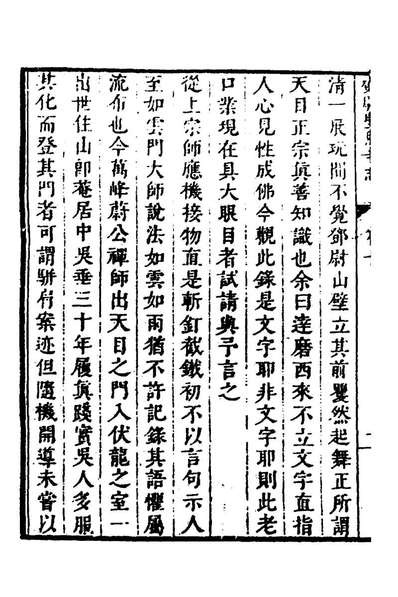 清一展玩間不覺鄧尉山壁立其前躍然起舞正所謂
天目正宗眞善知識也余曰達磨西來不立文字直指
人心見性成佛今觀此錄是文字耶非文字耶則此老
口業現在具大眼目者試請與予言之
從上宗師應機接物直是斬釘截鐵初不以言句示人
至如雲門大師說法如雲如雨猶不許記錄其語懼屬
流布也今萬峰蔚公禪師出天目之門入伏龍之室一
出世住山卽菴居中吳垂三十年履眞踐實吳人多服
其化而登其門者可謂駢肩案迹但隨機開導未嘗以